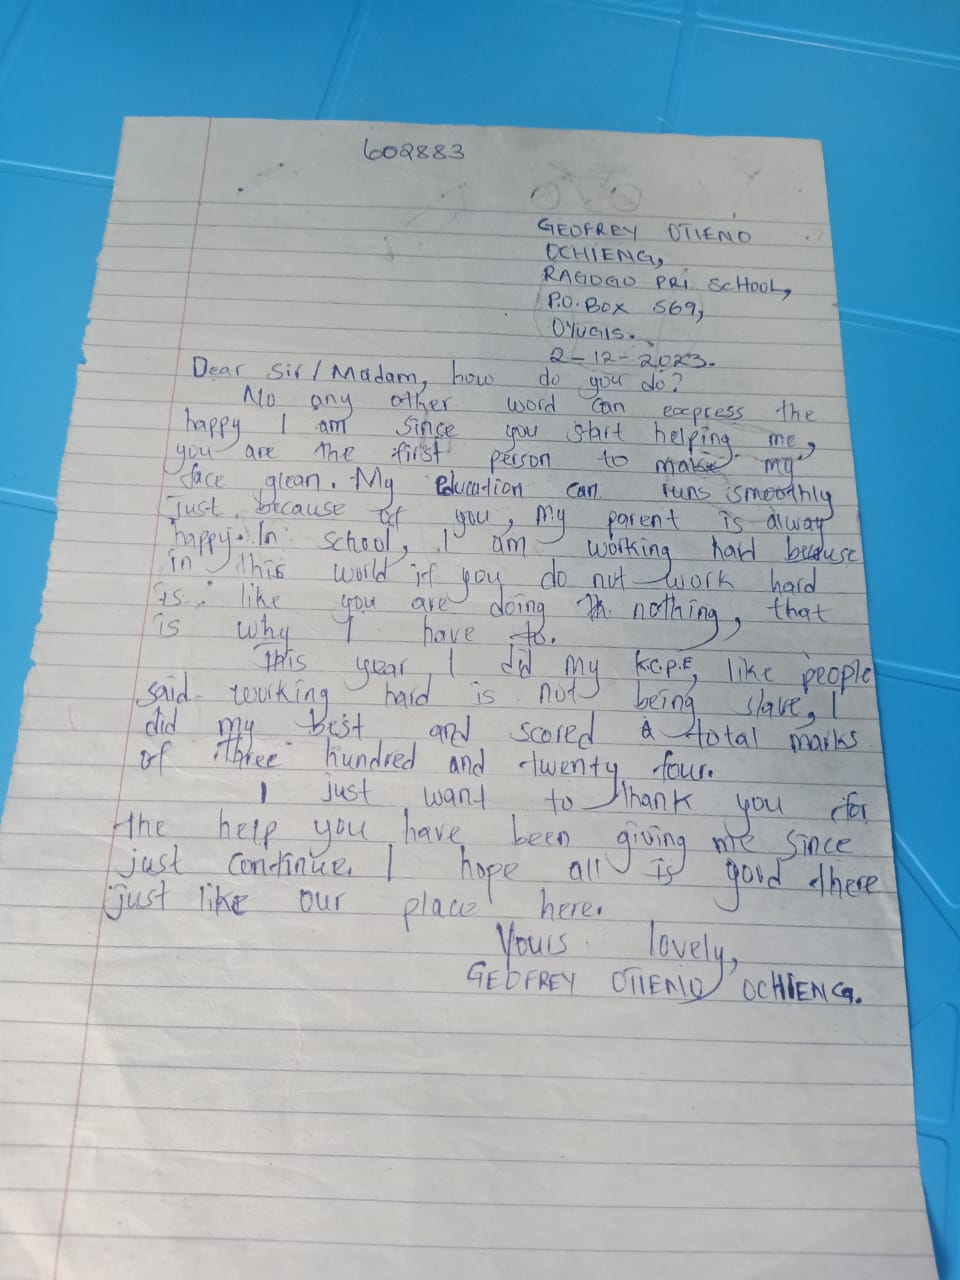 602883
GEOFREY OTIENO
OCHIENG,
RAGOGO PRI SCHOOL,
P.O. BOX 569,
OYUGIS.
2-12-2023.
Dear Sir/Madam, how do you do?
No any other word can express the
happy I am since you start helping me,
you are the first person to make my
face glean. My Education can runs smoothly
just because of you, my parent is alway
happy. In school, I am working hard because
in this world if you do not work hard
is like you are doing th nothing, that
is why I have to.
This year I did my K.C.P.E, like people
said working hard is not being slave, I
did my best and scored A total marks
of three hundred and twenty four.
I just want to thank you for
the help you have been giving me since
just continue. I hope all is good there
just like our place here.
Yours lovely,
GEOFREY OTIENO OCHIENG.